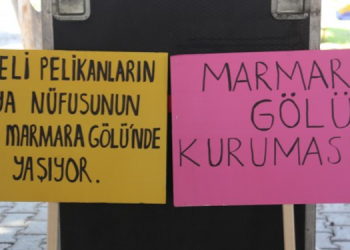 ELİ PELİKANLARIN
YA NÜFUSUNUN
MARMARA GÖLÜ'NDE
YAŞIYOR.
MARMAR
GÖLÜ
KURUMAS